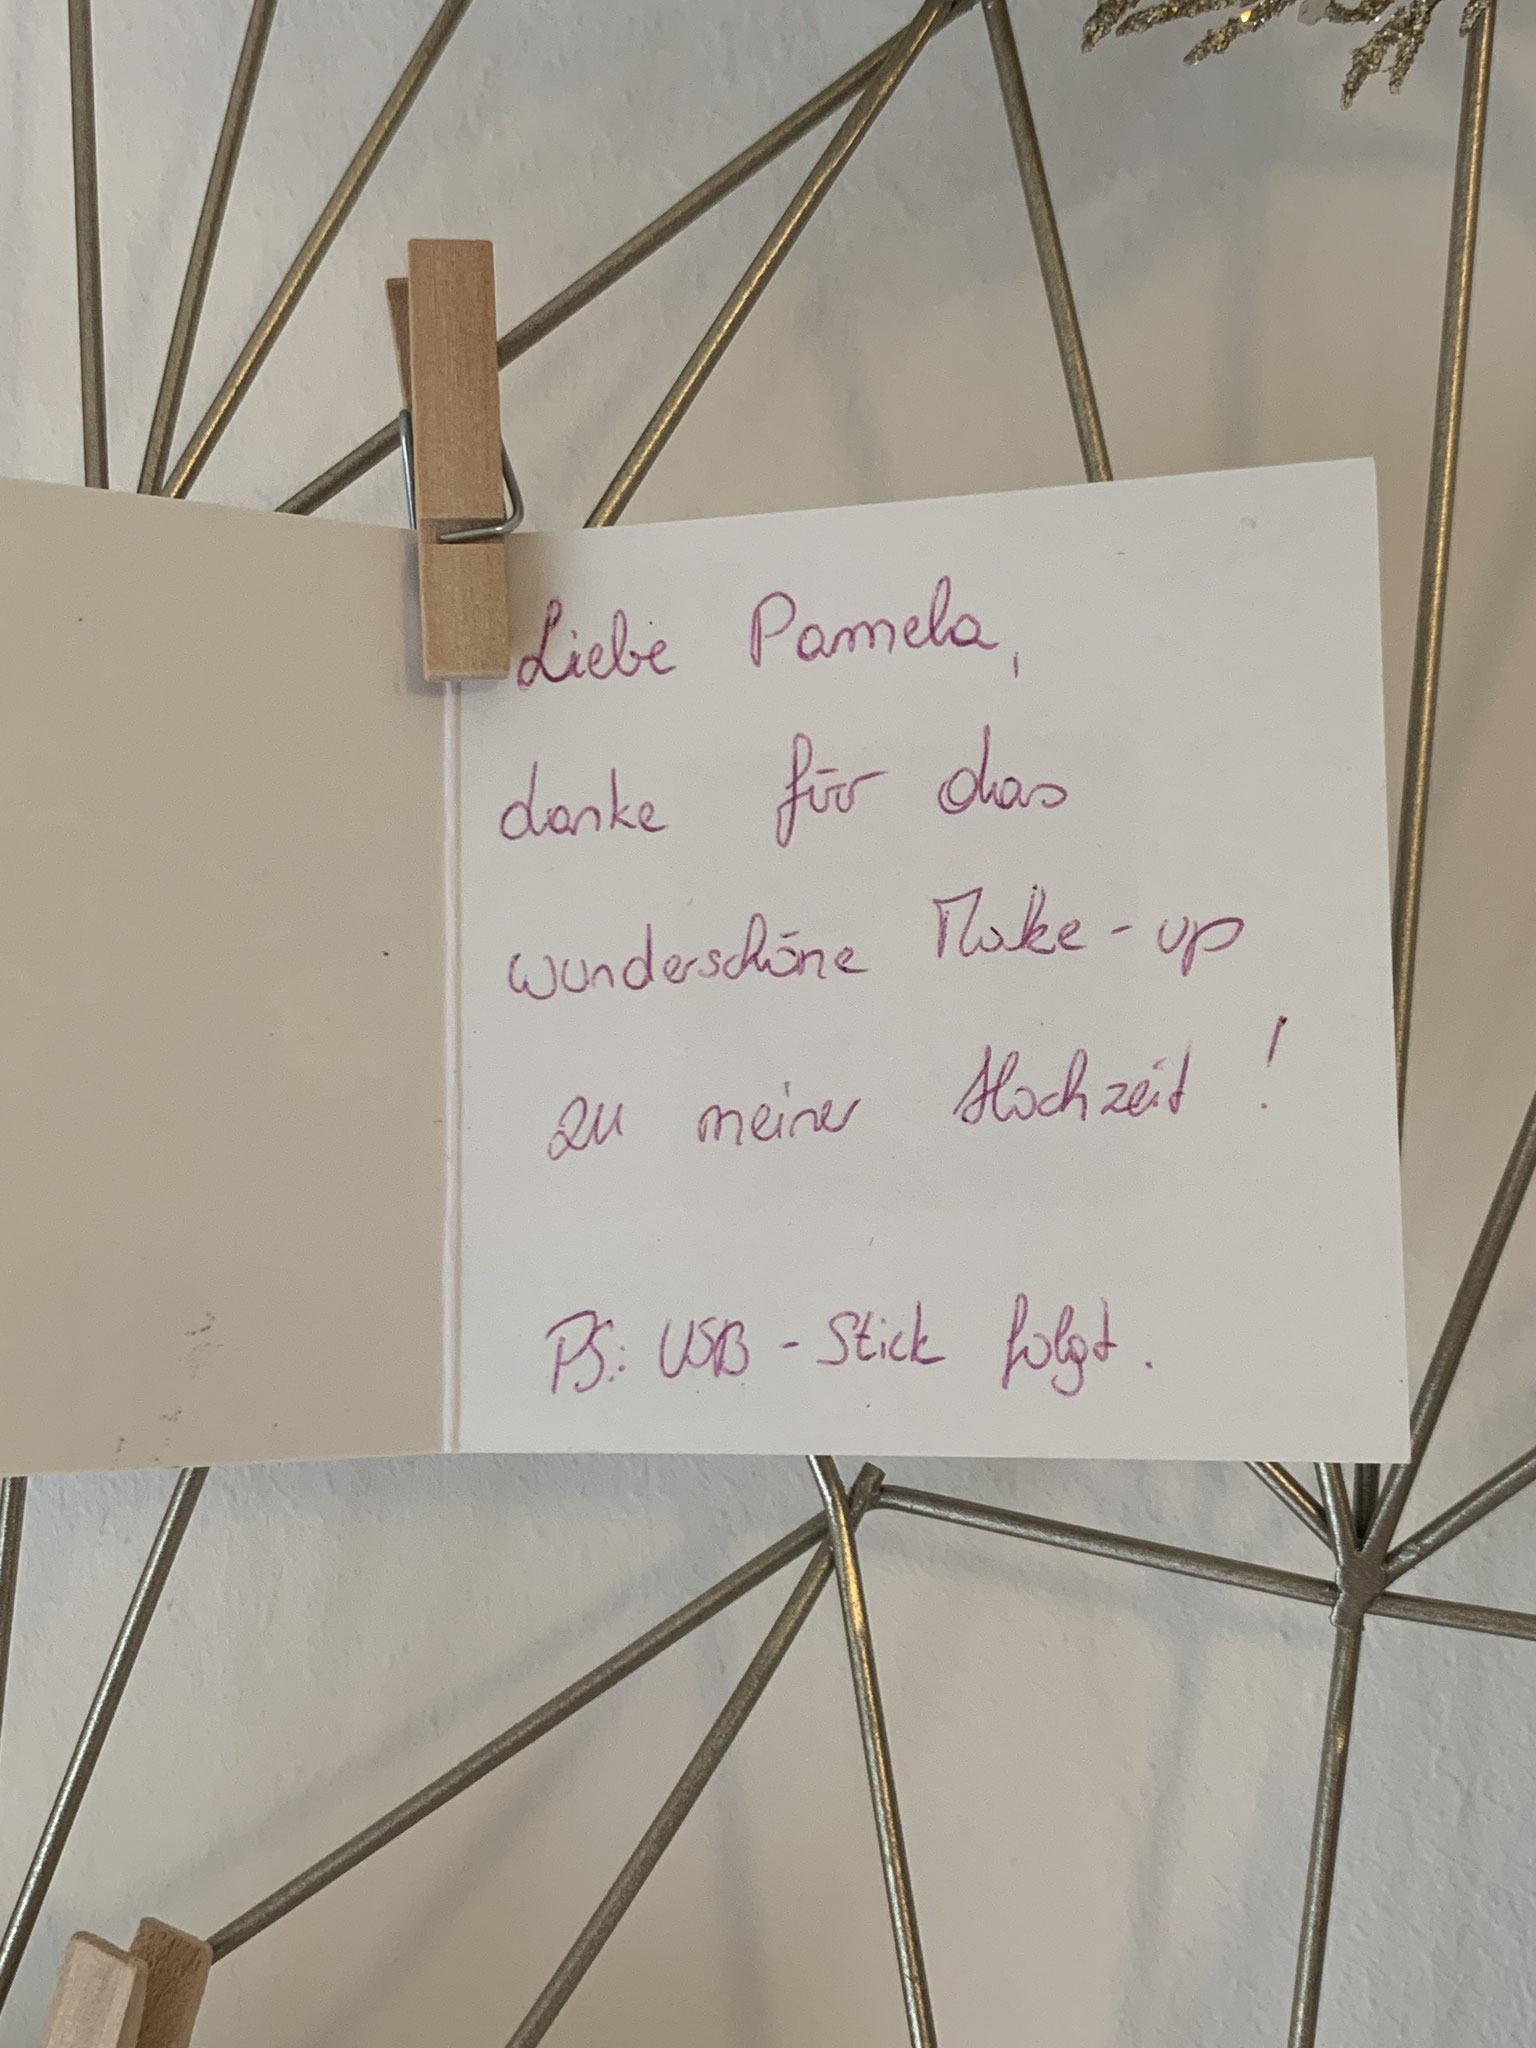 Liebe Pamela,
danke für das
wunderschöne Make-up
zu meiner Hochzeit!
PS.: USB-Stick folgt.